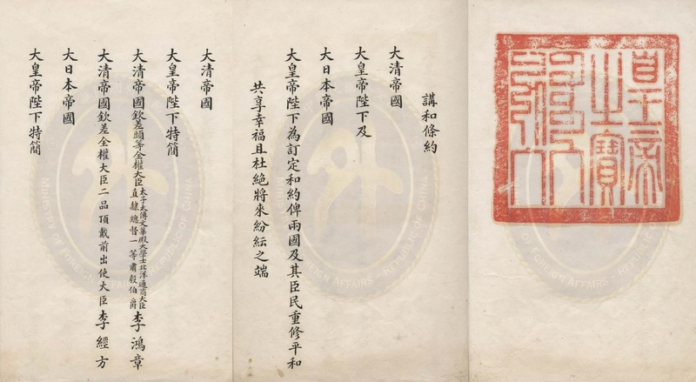 皇帝之寶
講和條約
大清帝國
大皇帝陛下及
大日本帝國
大皇帝陛下為訂定和約俾兩國及其臣民重修平和
共享幸福且杜絕將來紛紜之端
大清帝國
大皇帝陛下特簡
大清帝國欽差頭等全權大臣太子太傅文華殿大學士北洋通商大臣直隸總督一等肅毅伯爵李鴻章
大清帝國欽差全權大臣二品頂戴前出使大臣李經方
大日本帝國
大皇帝陛下特簡